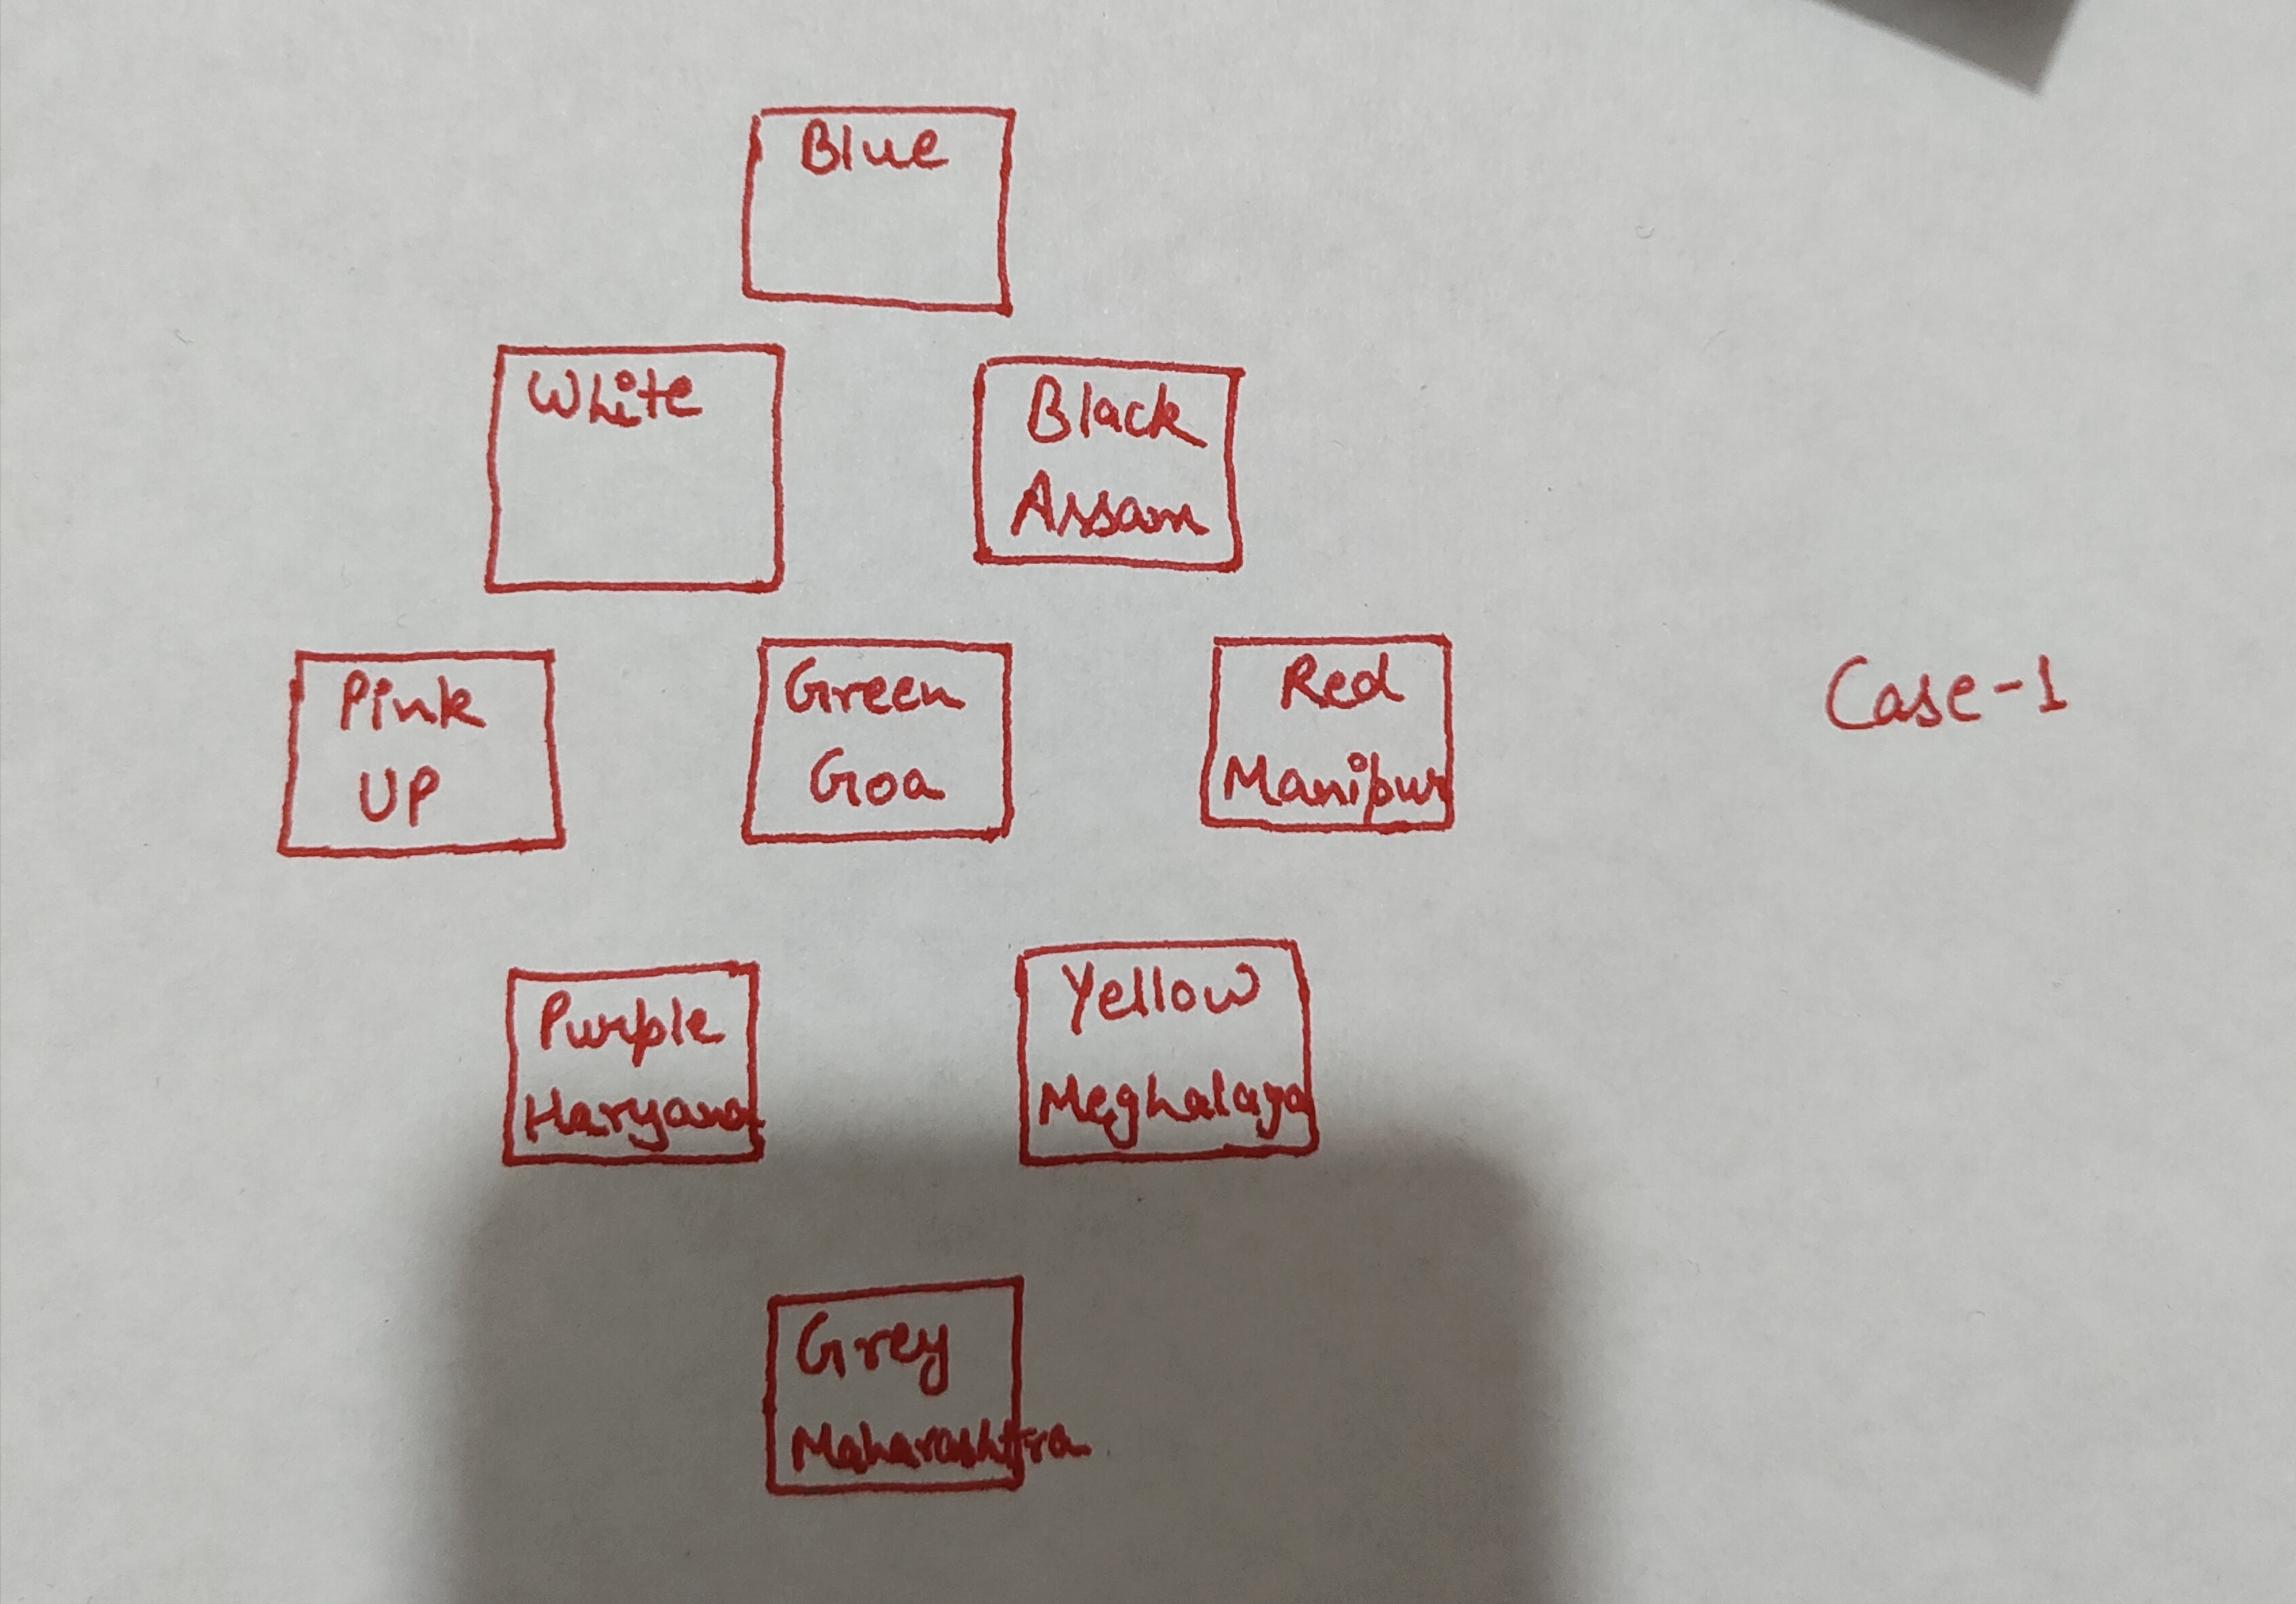 Blue
White
Black
Assam
Pink
UP
Green
Goa
Red
Manipur
Case-1
Purple
Haryana
Yellow
Meghalaya
Grey
Maharashtra